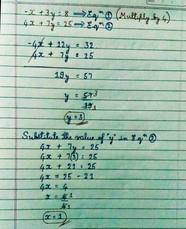 -x + 3y = 8 → Eqⁿ ① (Multiply by 4)
4x + 7y = 25 → Eqⁿ ②
-4x + 12y = 32
4x + 7y = 25
19y = 57
y = 57 3
19 1
y = 3
Substitute the value of 'y' in Eqⁿ ②
4x + 7y = 25
4x + 7(3) = 25
4x + 21 = 25
4x = 25 - 21
4x = 4
x = 4 1
4 1
x = 1